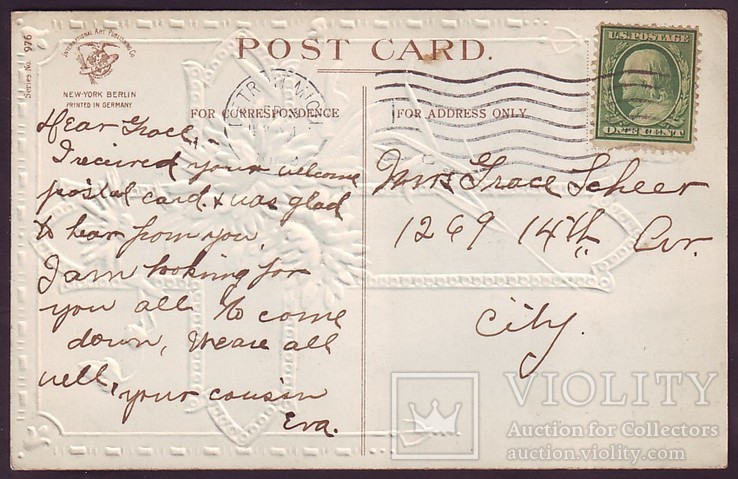 Series No. 976
INTERNATIONAL ART PUBLISHING CO.
NEW-YORK BERLIN
PRINTED IN GERMANY
POST CARD.
FOR CORRESPONDENCE
FOR ADDRESS ONLY.
U.S. POSTAGE
ONE CENT
Dear Grace,
I received your welcome
postal card & was glad
to hear from you,
I am looking for
you all to come
down, We are all
well, your cousin
Eva.
Mrs Grace Scheer
1269 14th Av.
City.
VIOLITY
Auction for Collectors
auction.violity.com